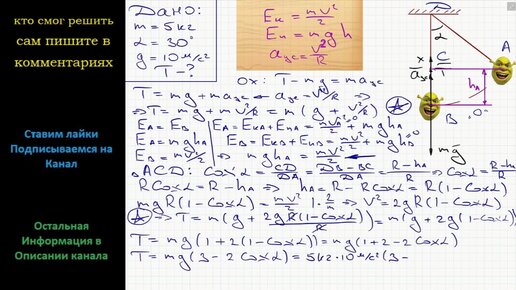 кто смог решить
сам пишите в
комментариях
Ставим лайки
Подписываемся на
Канал
Остальная
Информация в
Описании канала
Дано:
m = 5 кг
α = 30°
g = 10 м/с²
T - ?
Eк = mv²/2
Eп = mgh
aцс = v²/R
Ox: T - mg = maцс
T = mg + maцс ← aцс = v²/R ⇒
⇒ T = mg + m v²/R = m(g + v²/R) A
EA = EB | EA = EкA + EпA = mvA²/2 + mghA
EA = mghA | EB = EкB + EпB = mv²/2 + mghB
EB = mv²/2 ⇒ mghA = mv²/2
ΔACD: Cosα = CD/DA = (DB-BC)/DA = (R-hA)/R ⇒ Cosα = (R-hA)/R
RCosα = R - hA ⇒ hA = R - RCosα = R(1-Cosα)
mgR(1-Cosα) = mv²/2 | · 2/m ⇒ V² = 2gR(1-Cosα)
A ⇒ T = m(g + 2gR(1-Cosα)/R) = m(g + 2g(1-Cosα))
T = mg(1+2(1-Cosα)) = mg(1+2-2Cosα)
T = mg(3-2Cosα) = 5кг·10м/с²(3-
D
α
A
x
C
T
aцс
hA
B
"0"
mg